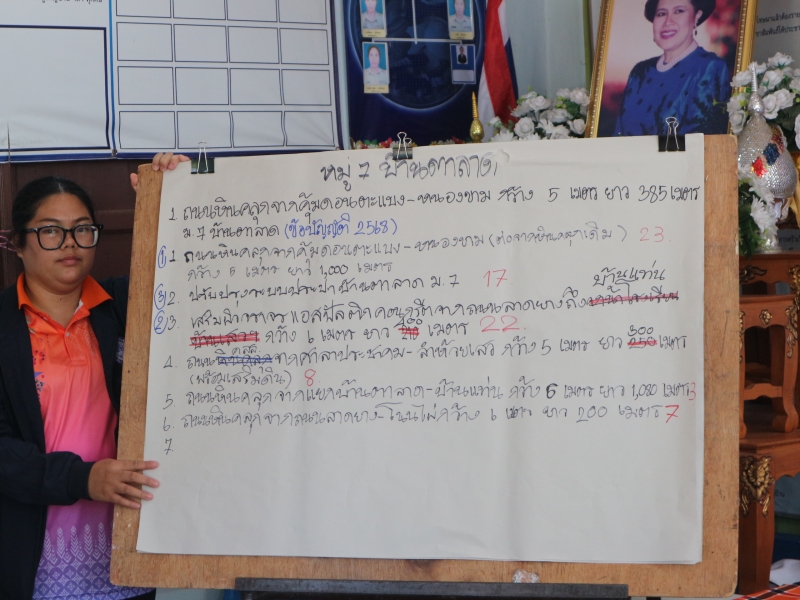 หมู่ 7 บ้านตาลาด
1. ถนนหินคลุกจากคุ้มดอนตะแบง-หนองขาม กว้าง 5 เมตร ยาว 385 เมตร
ม.7 บ้านตาลาด (ข้อบัญญัติ 2568)
① 1. ถนนหินคลุกจากคุ้มดอนตะแบง-หนองขาม (ต่อจากหินคลุกเดิม) 23
กว้าง 5 เมตร ยาว 1,000 เมตร
③ 2. ปรับปรุงระบบประปาบ้านตาลาด ม.7 17
บ้านแท่น
② 3. เสริมผิวจราจรแอสฟัลติกคอนกรีตจากถนนลาดยางถึง
กว้าง 6 เมตร ยาว เมตร 22
300
4. ถนน จากศาลาประชาคม-ลำห้วยเสว กว้าง 5 เมตร ยาว 250 เมตร
(พร้อมเสริมดิน) 8
5. ถนนหินคลุกจากแยกบ้านตาลาด-บ้านแท่น กว้าง 6 เมตร ยาว 1,080 เมตร 3
6. ถนนหินคลุกจากถนนลาดยาง-โนนไผ่ กว้าง 6 เมตร ยาว 200 เมตร 7
7